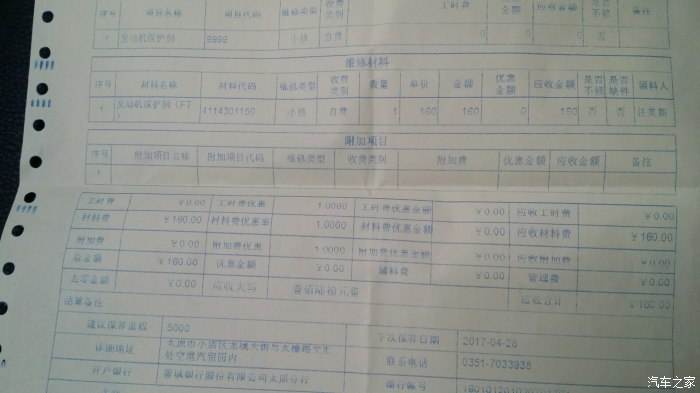 序号 项目名称 项目代码 维修类型 收费类别 工时费 金额 应收金额 是否不修 备注
1 发动机保护剂 9999 小修 自费 0 0 否
维修材料
序号 材料名称 材料代码 维修类型 收费类别 数量 单价 金额 优惠金额 应收金额 是否不修 是否缺件 领料人
发动机保护剂（FT 4114301150 小修 自费 1 160 160 0 160 否 否
附加项目
序号 附加项目名称 附加项目代码 维修类型 收费类别 附加费 优惠金额 应收金额 备注
工时费 ￥0.00 工时费优惠 1.0000 工时费优惠金额 ￥0.00 应收工时费 ￥0.00
材料费 ￥160.00 材料费优惠率 1.0000 材料费优惠金额 ￥0.00 应收材料费 ￥160.00
附加费 ￥0.00 附加费优惠 1.0000 附加费优惠金额 ￥0.00 应收附加费 ￥0.00
总金额 ￥160.00 优惠金额 ￥0.00 辅料费 ￥0.00 管理费 ￥0.00
去零金额 ￥0.00 应收大写 壹佰陆拾元整 应收合计 ￥160.00
结算备注
建议保养里程 5000 下次保养日期 2017-04-26
详细地址 太原市小店区龙城大街与太榆路
处空港汽贸园内 联系电话 0351-7033938
开户银行 晋城银行股份有限公司太原分行 银行账号
汽车之家